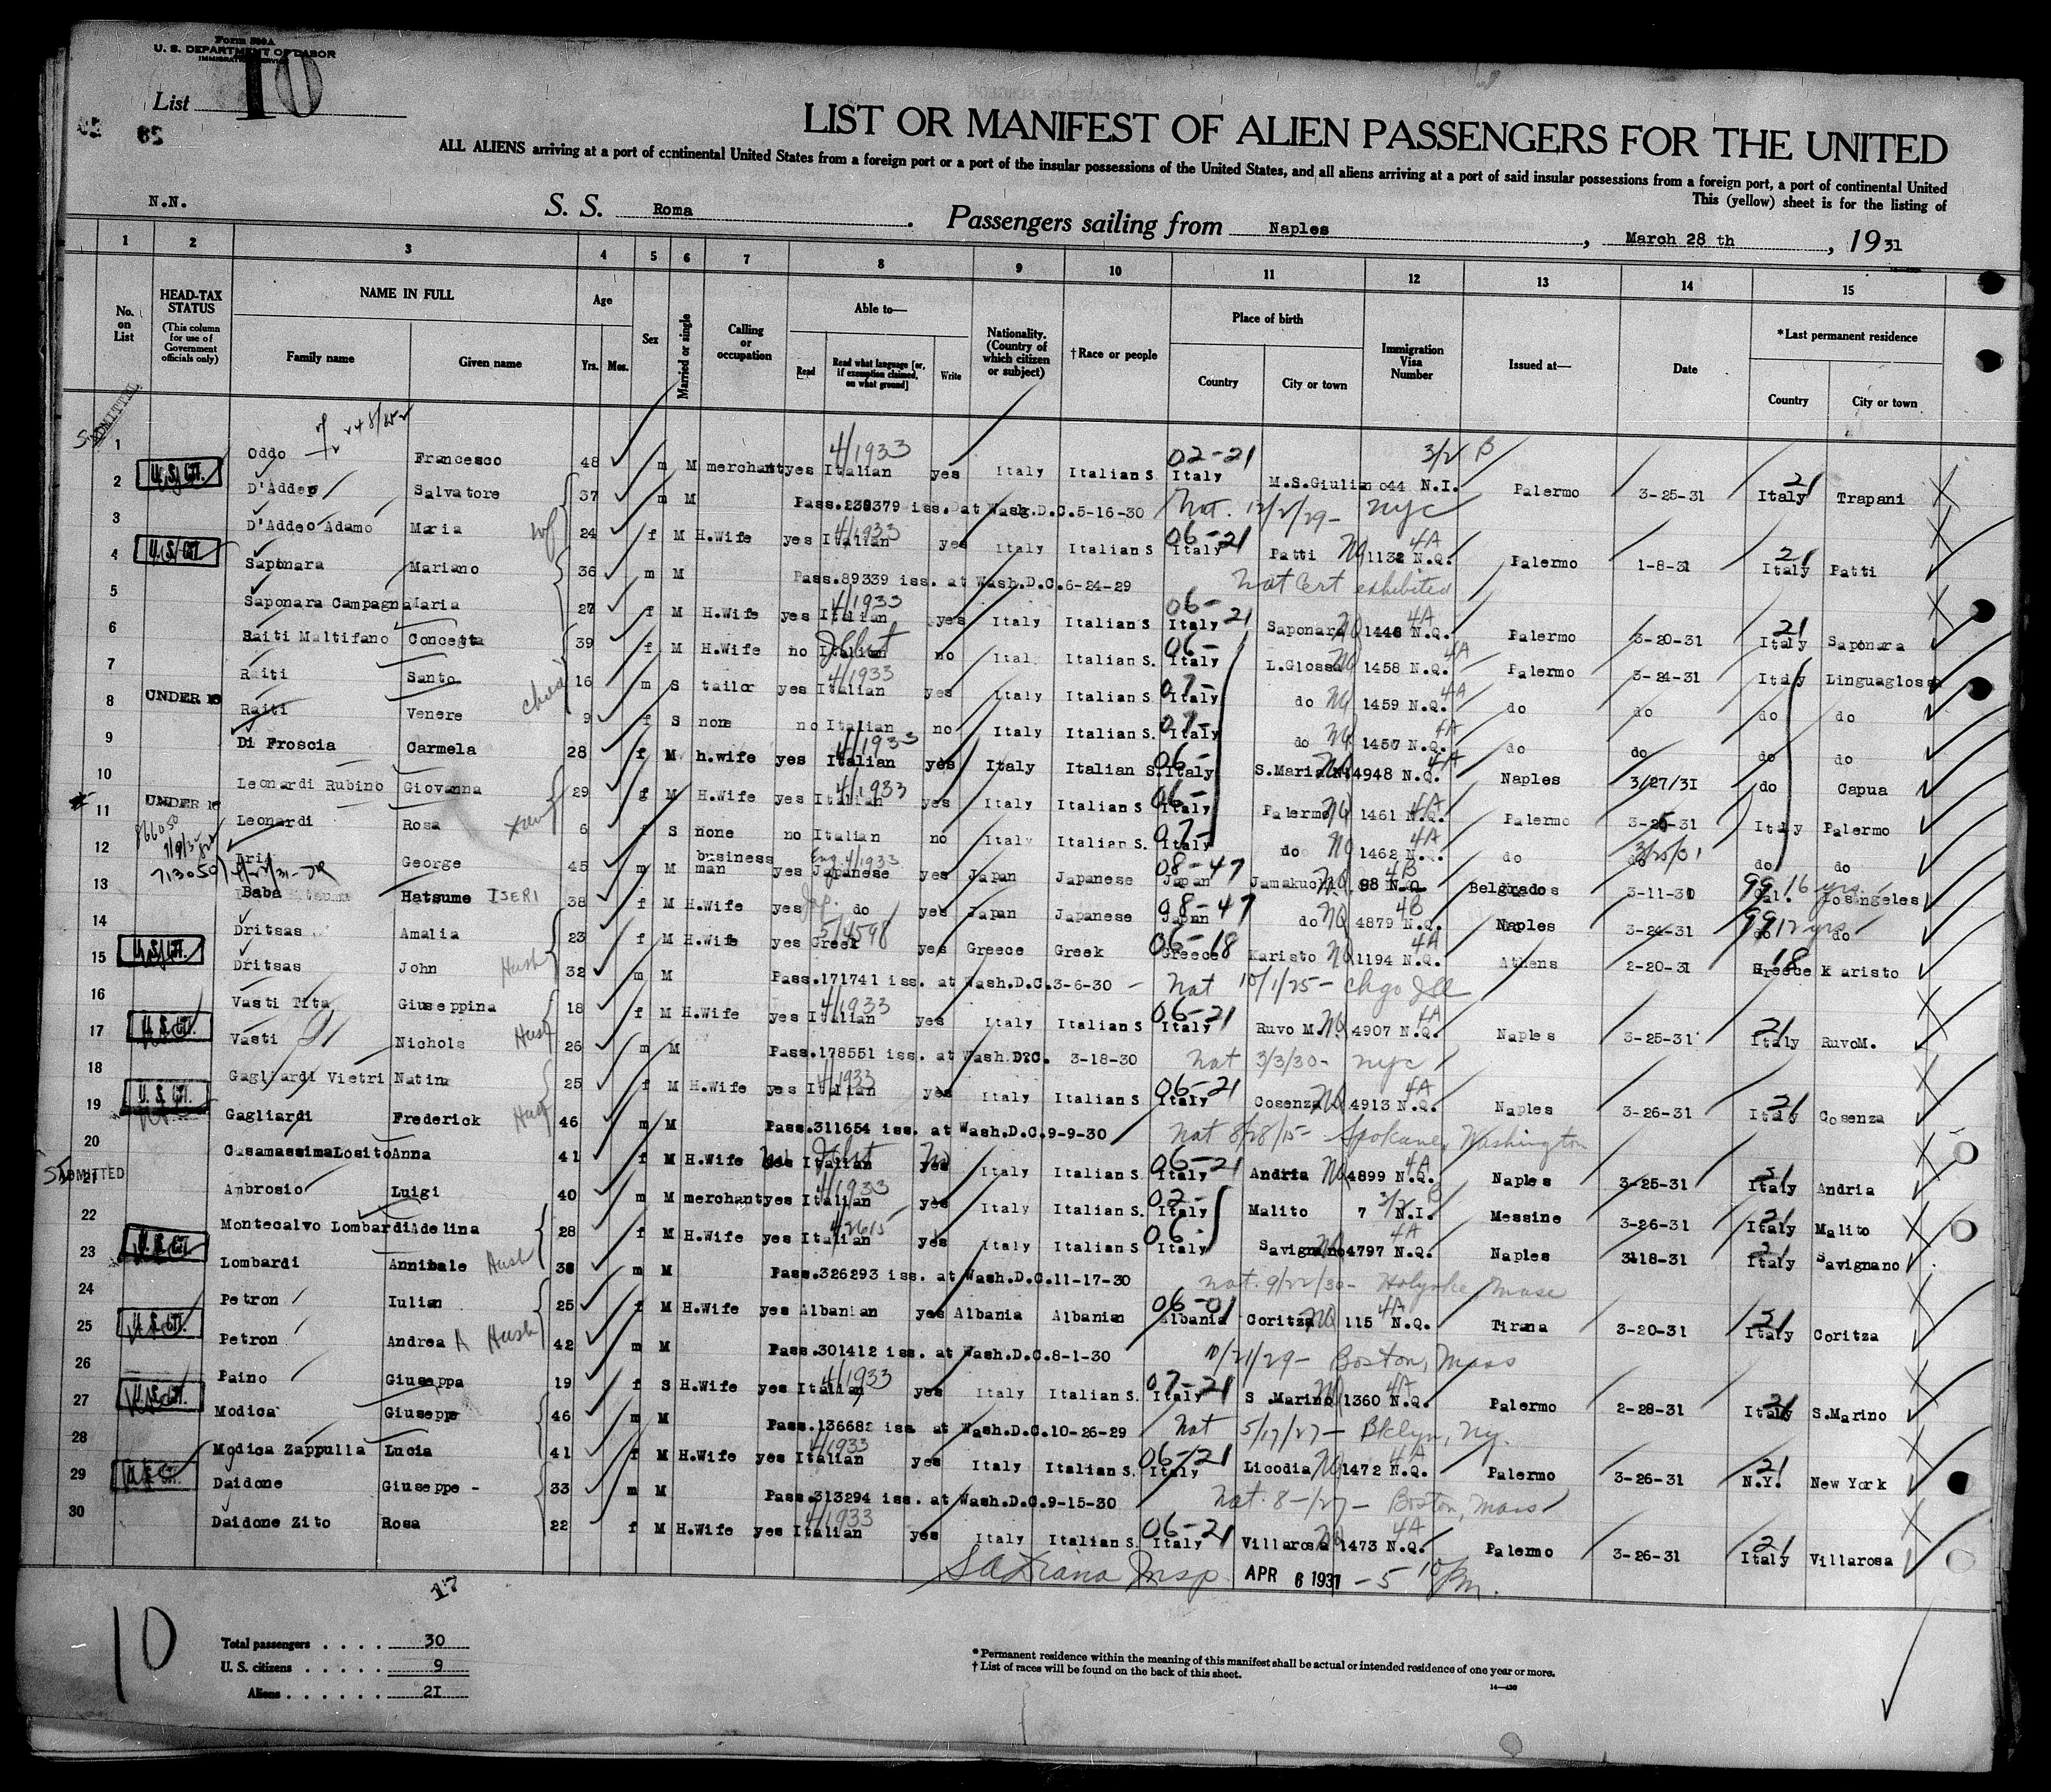 Form 500A
U. S. DEPARTMENT OF LABOR
IMMIGRATION SERVICE
List 10
LIST OR MANIFEST OF ALIEN PASSENGERS FOR THE UNITED
ALL ALIENS arriving at a port of continental United States from a foreign port or a port of the insular possessions of the United States, and all aliens arriving at a port of said insular possessions from a foreign port, a port of continental United
This (yellow) sheet is for the listing of
N.N.
S. S. Roma. Passengers sailing from Naples, March 28 th, 1931
1 2 3 4 5 6 7 8 9 10 11 12 13 14 15
No. on List
HEAD-TAX STATUS (This column for use of Government officials only)
NAME IN FULL Family name Given name
Age Yrs. Mos.
Sex
Married or single
Calling or occupation
Able to— Read Read what language [or, if exemption claimed, on what ground] Write
Nationality. (Country of which citizen or subject)
†Race or people
Place of birth Country City or town
Immigration Visa Number
Issued at—
Date
*Last permanent residence Country City or town
ADMITTED
1 Oddo Francesco 48 m M merchant yes Italian 4/1933 yes Italy Italian S 02-21 Italy M.S.Giulian 644 N.I. 3/2 B Palermo 3-25-31 21 Italy Trapani
2 U.S. CIT. D'Addeo Salvatore 37 m M Pass.239379 iss. at Wash.D.C.5-16-30 Nat. 12/2/29- NYC
3 D'Addeo Adamo Maria wf 24 f M H.Wife yes Italian 4/1933 yes Italy Italian S 06-21 Italy Patti NQ 1132 N.Q. 4A Palermo 1-8-31 21 Italy Patti
4 U.S. CIT. Saponara Mariano 36 m M Pass.89339 iss. at Wash.D.C.6-24-29 Nat Cert exhibited
5 Saponara Campagna Maria 27 f M H.Wife yes Italian 4/1933 yes Italy Italian S 06-21 Italy Saponara NQ 1446 N.Q. 4A Palermo 3-20-31 21 Italy Saponara
6 Raiti Maltifano Concetta 39 f M H.Wife no Italian no Ital. Italian S. 06- Italy L.Glossa NQ 1458 N.Q. 4A Palermo 3-24-31 Italy Linguaglossa
7 Raiti Santo child 16 m S tailor yes Italian 4/1933 yes Italy Italian S. 07- Italy do NQ 1459 N.Q. 4A do do do do
8 UNDER 16 Raiti Venere 9 f S none no Italian no Italy Italian S. 07- Italy do NQ 1457 N.Q. 4A do do do do
9 Di Froscia Carmela 28 f M h.wife yes Italian 4/1933 yes Italy Italian S. 06- Italy S.Maria NQ 4948 N.Q. 4A Naples 3/27/31 do Capua
10 Leonardi Rubino Giovanna 29 f M H.Wife yes Italian 4/1933 yes Italy Italian S 06- Italy Palermo NQ 1461 N.Q. 4A Palermo 3-25-31 Italy Palermo
11 UNDER 16 Leonardi Rosa 6 f S none no Italian no Italy Italian S. 07- Italy do NQ 1462 N.Q. 4A do 3/25/31 do do
12 George 45 m M business man yes Japanese Eng. 4/1933 yes Japan Japanese 08-47 Japan Jamakuchi 98 N.Q. 4B Belgrado 3-11-31 99 Cal. 16 yrs. Losangeles
13 713050 Baba Hatsume ISERI 38 f M H.Wife yes Jap. do yes Japan Japanese 08-47 Japan do NQ 4879 N.Q. 4B Naples 3-24-31 99 do 12 yrs do
14 Dritsas Amalia 23 f M H.Wife yes Greek 5/4598 yes Greece Greek 06-18 Greece Karisto NQ 1194 N.Q. 4A Athens 2-20-31 18 Greece Karisto
15 U.S. CIT. Dritsas John Husb 32 m M Pass.171741 iss. at Wash.D.C.3-6-30 - Nat 10/1/25- Chgo Ill
16 Vasti Tita Giuseppina 18 f M H.Wife yes Italian 4/1933 yes Italy Italian S 06-21 Italy Ruvo M. NQ 4907 N.Q. 4A Naples 3-25-31 21 Italy RuvoM.
17 U.S. CIT. Vasti Nichols Husb 26 m M Pass.178551 iss. at Wash.D.C. 3-18-30 Nat 3/3/30- NYC
18 Gagliardi Vietri Natina 25 f M H.Wife yes Italian 4/1933 yes Italy Italian S. 06-21 Italy Cosenza NQ 4913 N.Q. 4A Naples 3-26-31 21 Italy Cosenza
19 U.S. CIT. Gagliardi Frederick Husb 46 m M Pass.311654 iss. at Wash.D.C.9-9-30 Nat 8/28/15- Spokane, Washington
20 CasamassimaLosito Anna 41 f M H.Wife Italian Italy Italian S. 06-21 Italy Andria NQ 4899 N.Q. 4A Naples 3-25-31 21 Italy Andria
ADMITTED
21 Ambrosio Luigi 40 m M merchant yes Italian 4/1933 yes Italy Italian S. 02- Italy Malito 7 N.I. 3/2 B Messine 3-26-31 21 Italy Malito
22 Montecalvo Lombardi Adelina 28 f M H.Wife yes Italian yes Italy Italian S 06- Italy Savignano 4797 N.Q. 4A Naples 3-18-31 21 Italy Savignano
23 U.S. CIT. Lombardi Annibale Husb 38 m M Pass.326293 iss. at Wash.D.C.11-17-30 Nat. 9/22/30- Holyoke, Mass
24 Petron Iulian 25 f M H.Wife yes Albanian yes Albania Albanian 06-01 Albania Coritza NQ 115 N.Q. 4A Tirana 3-20-31 21 Italy Coritza
25 U.S. CIT. Petron Andrea A Husb 42 m M Pass.301412 iss. at Wash.D.C.8-1-30 10/21/29- Boston, Mass
26 Paino Giuseppa 19 f S H.Wife yes Italian 4/1933 yes Italy Italian S. 07-21 Italy S .Marino NQ 1360 N.Q. 4A Palermo 2-28-31 21 Italy S.Marino
27 U.S. CIT. Modica Giuseppe 46 m M Pass.136682 iss. at Wash.D.C.10-26-29 Nat 5/17/27- Bklyn, Ny.
28 Modica Zappulla Lucia 41 f M H.Wife yes Italian 4/1933 yes Italy Italian S. 06-21 Italy Licodia NQ 1472 N.Q. 4A Palermo 3-26-31 21 N.Y. New York
29 U.S. CIT. Daidone Giuseppe - 33 m M Pass.313294 iss. at Wash.D.C.9-15-30 Nat. 8-/27- Boston, Mass
30 Daidone Zito Rosa 22 f M H.Wife yes Italian 4/1933 yes Italy Italian S. 06-21 Italy Villarosa NQ 1473 N.Q. 4A Palermo 3-26-31 21 Italy Villarosa
Insp. APR 6 1931 - 5 10 PM.
17
10
Total passengers . . . . 30
U. S. citizens . . . . . 9
Aliens . . . . . . 21
* Permanent residence within the meaning of this manifest shall be actual or intended residence of one year or more.
† List of races will be found on the back of this sheet.